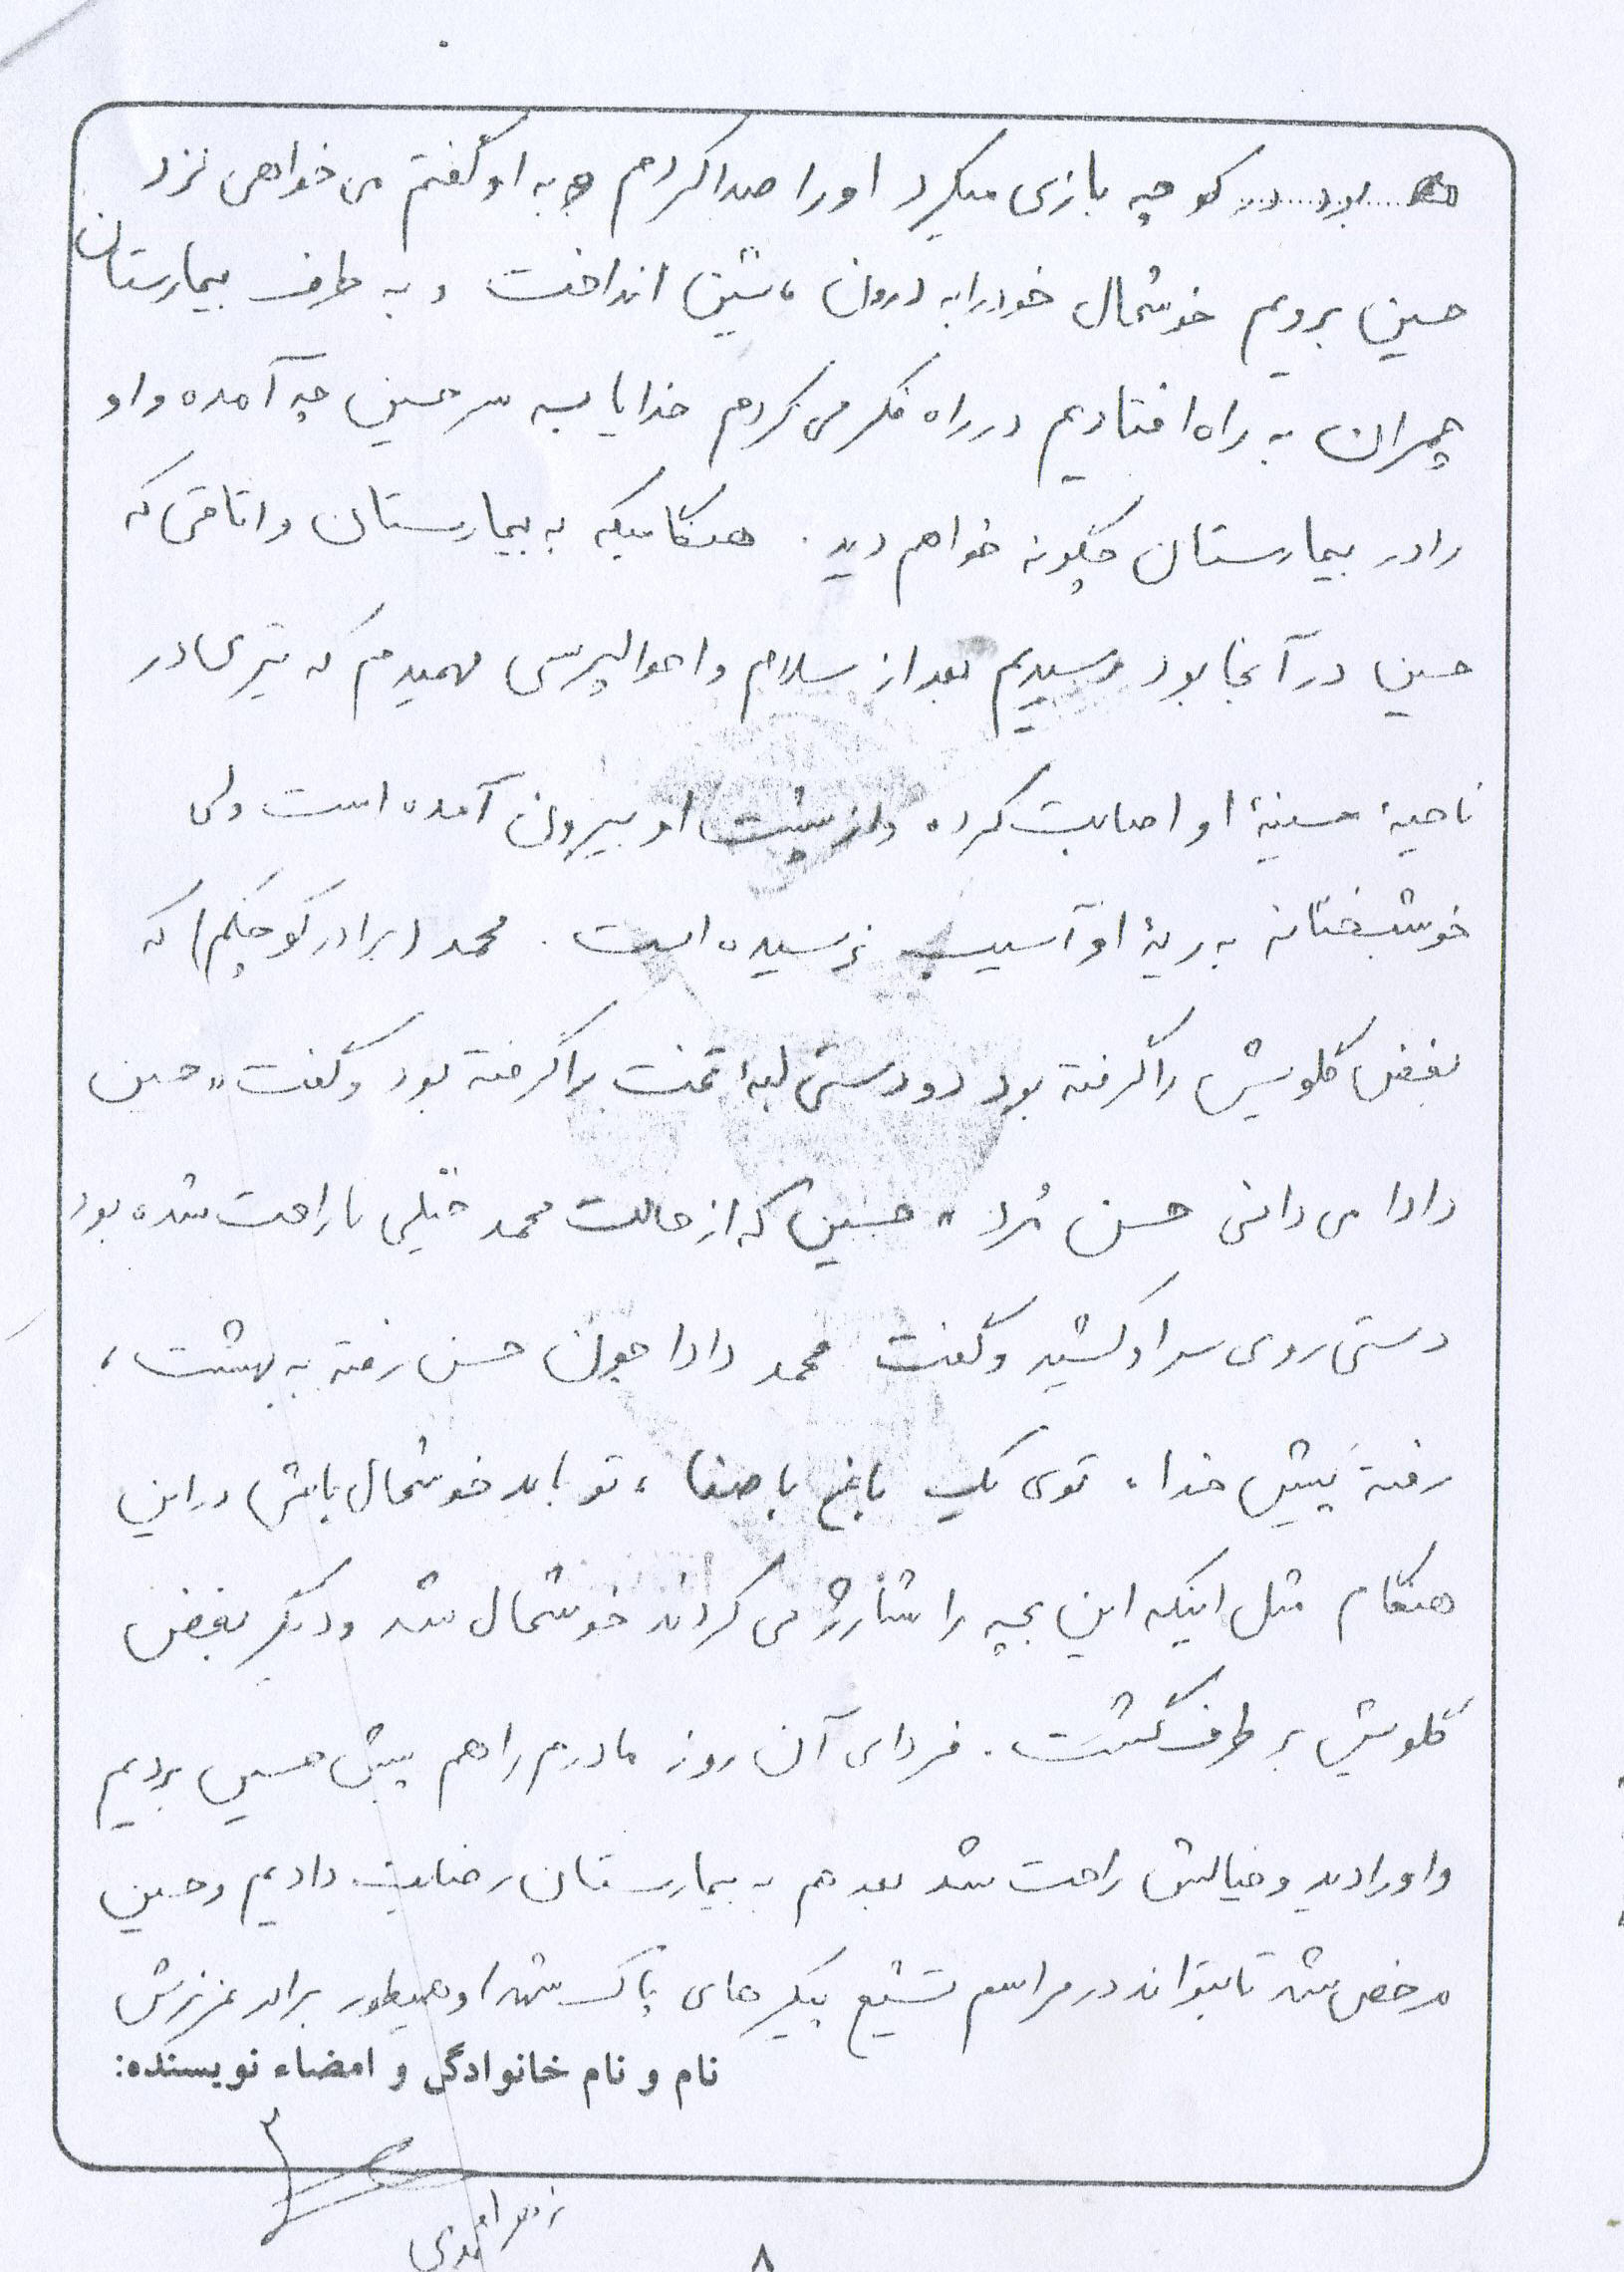 بود در کوچه بازی میکرد او را صدا کردم و به او گفتم می خواهی نزد
حسین برویم خوشحال خود را به درون ماشین انداخت و به طرف بیمارستان
چمران به راه افتادیم در راه فکر می کردم خدایا به سر حسین چه آمده و او
را در بیمارستان چگونه خواهم دید . هنگامیکه به بیمارستان و اتاقی که
حسین در آنجا بود رسیدیم بعد از سلام و احوالپرسی فهمیدم که تیری در
ناحیهٔ سینهٔ او اصابت کرده و از پشت او بیرون آمده است ولی
خوشبختانه به ریهٔ او آسیب نرسیده است . محمد (برادر کوچکم) که
بغض گلویش را گرفته بود دو دستی لبهٔ تخت را گرفته بود و گفت «حسین
دادا می دانی حسن مُرد» حسین که از حالت محمد خیلی ناراحت شده بود
دستی روی سر او کشید و گفت محمد دادا جون حسن رفته به بهشت ،
رفته پیش خدا ، توی یک باغ با صفا ، تو باید خوشحال باشی در این
هنگام مثل اینکه این بچه را شارژ می کردند خوشحال شد و دیگر بغض
گلویش بر طرف گشت . فردای آن روز مادرم را هم پیش حسین بردیم
و او را دید و خیالش راحت شد بعد هم به بیمارستان رضایت دادیم و حسین
مرخص شد تا بتواند در مراسم تشیع پیکرهای پاک شهدا و همینطور برادر عزیزش
نام و نام خانوادگی و امضاء نویسنده:
زهرا احمدی
۸